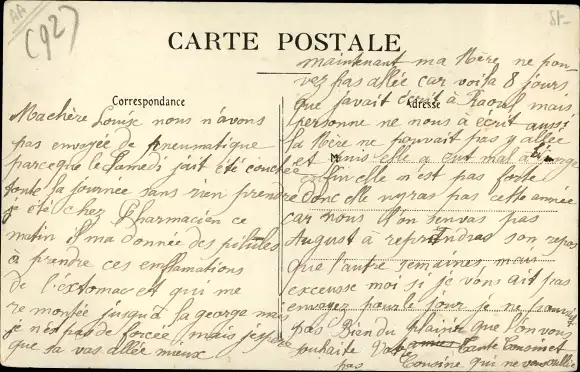 AA
(92)
51-
CARTE POSTALE
Correspondance
Adresse
M
Ma chère Louise nous n'avons
pas envoyée de pneumatique
parceque le Samedi j'ait été couchée
toute la journée sans rien prendre
j'e été chez Pharmacien ce
matin il ma donnée des pilules
à prendre ces emflamations
de l'extomac et qui me
remontée jusqu'à la george mai
je n'ai pas de forcée, mais j'espère
que sa vas allée mieux
maintenant ma Mère ne pou
vez pas allée car voila 8 jours
que j'avait écrit à Raoul mais
personne ne nous à écrit aussi
la Mère ne pouvait pas y allée
et puis elle a eut mal à
enfin elle n'est pas forte
donc elle n'yras pas cette année
car nous l'on servas pas
August à reprendras son repos
que l'autre semaines mais
excusse moi si je vous ait pas
envoyez pour le jour je ne
pas Bien du plainte que l'on vous
souhaite Vote amies Tante Cousinet
Cousine qui ne vous oublie
pas